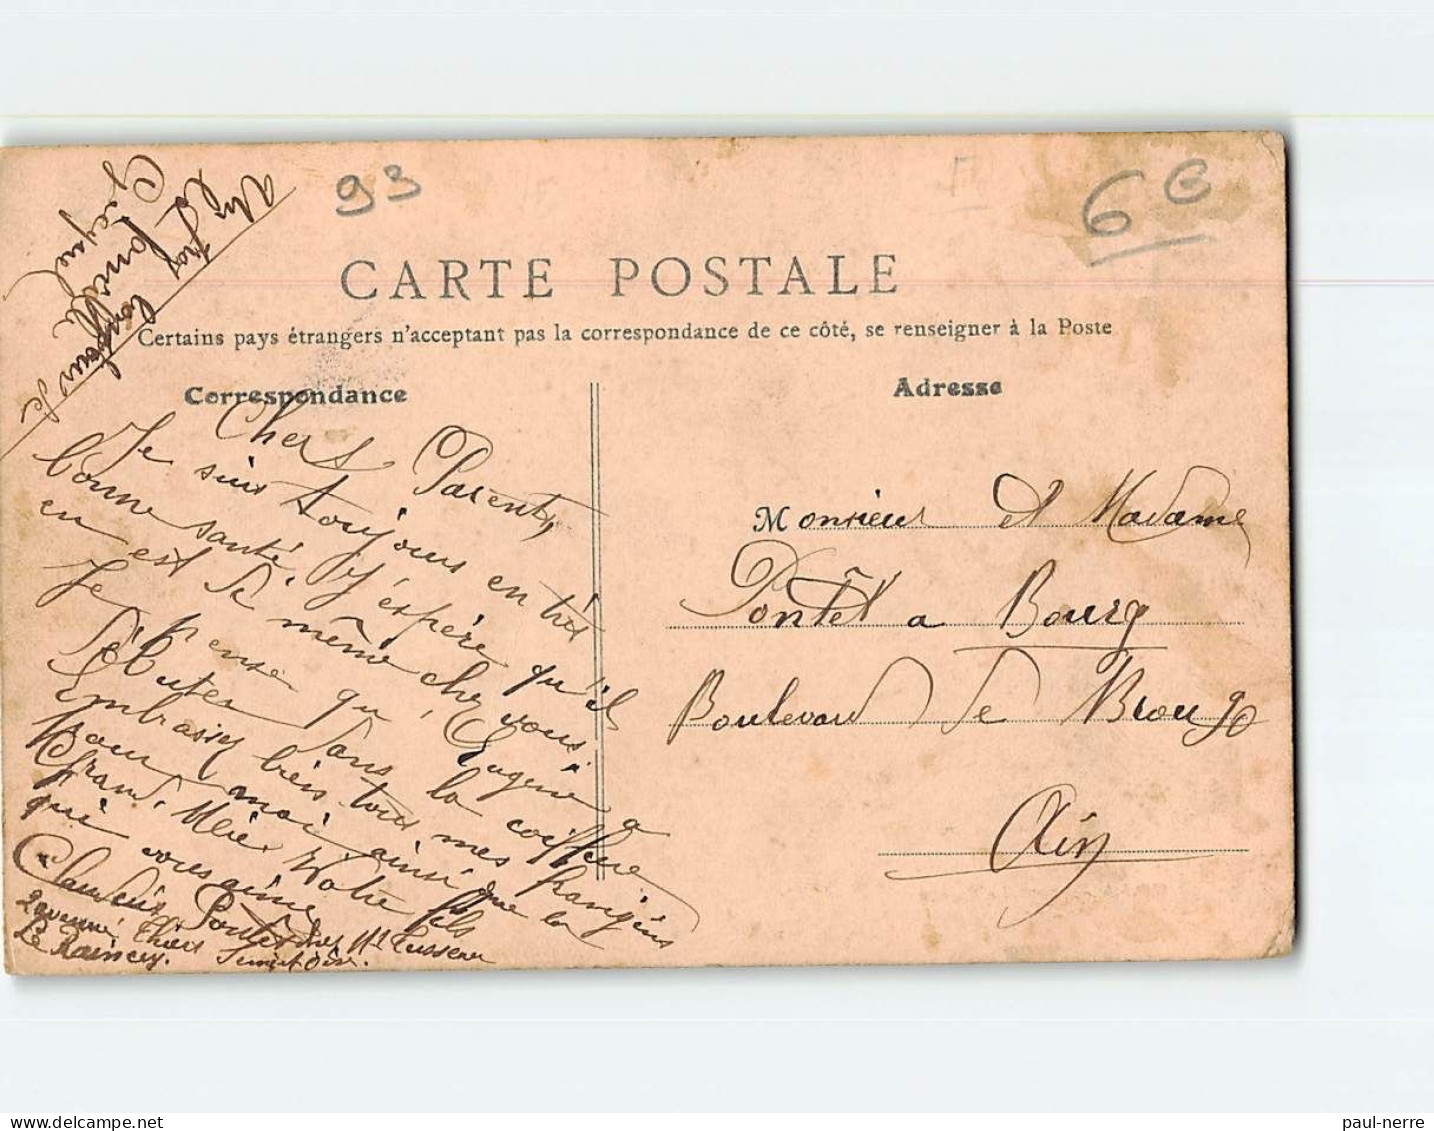 93
6 €
CARTE POSTALE
Certains pays étrangers n'acceptant pas la correspondance de ce côté, se renseigner à la Poste
Correspondance
Adresse
Chers Parents,
Je suis toujours en très
bonne santé, j'espère qu'il
en est de même chez vous.
Je pense qu' Eugénie a
débuter dans la coiffure
Embrassez bien tous mes frangins
Pour moi ainsi que la
Grand. Mère. Votre fils
qui vous aime
Claudius Pontet chez Mr
2 avenue Thiers
Le Raincy. Seine et Oise.
Monsieur et Madame
Pontet a Bourg
Boulevard de Brou
Ain
paul-nerre